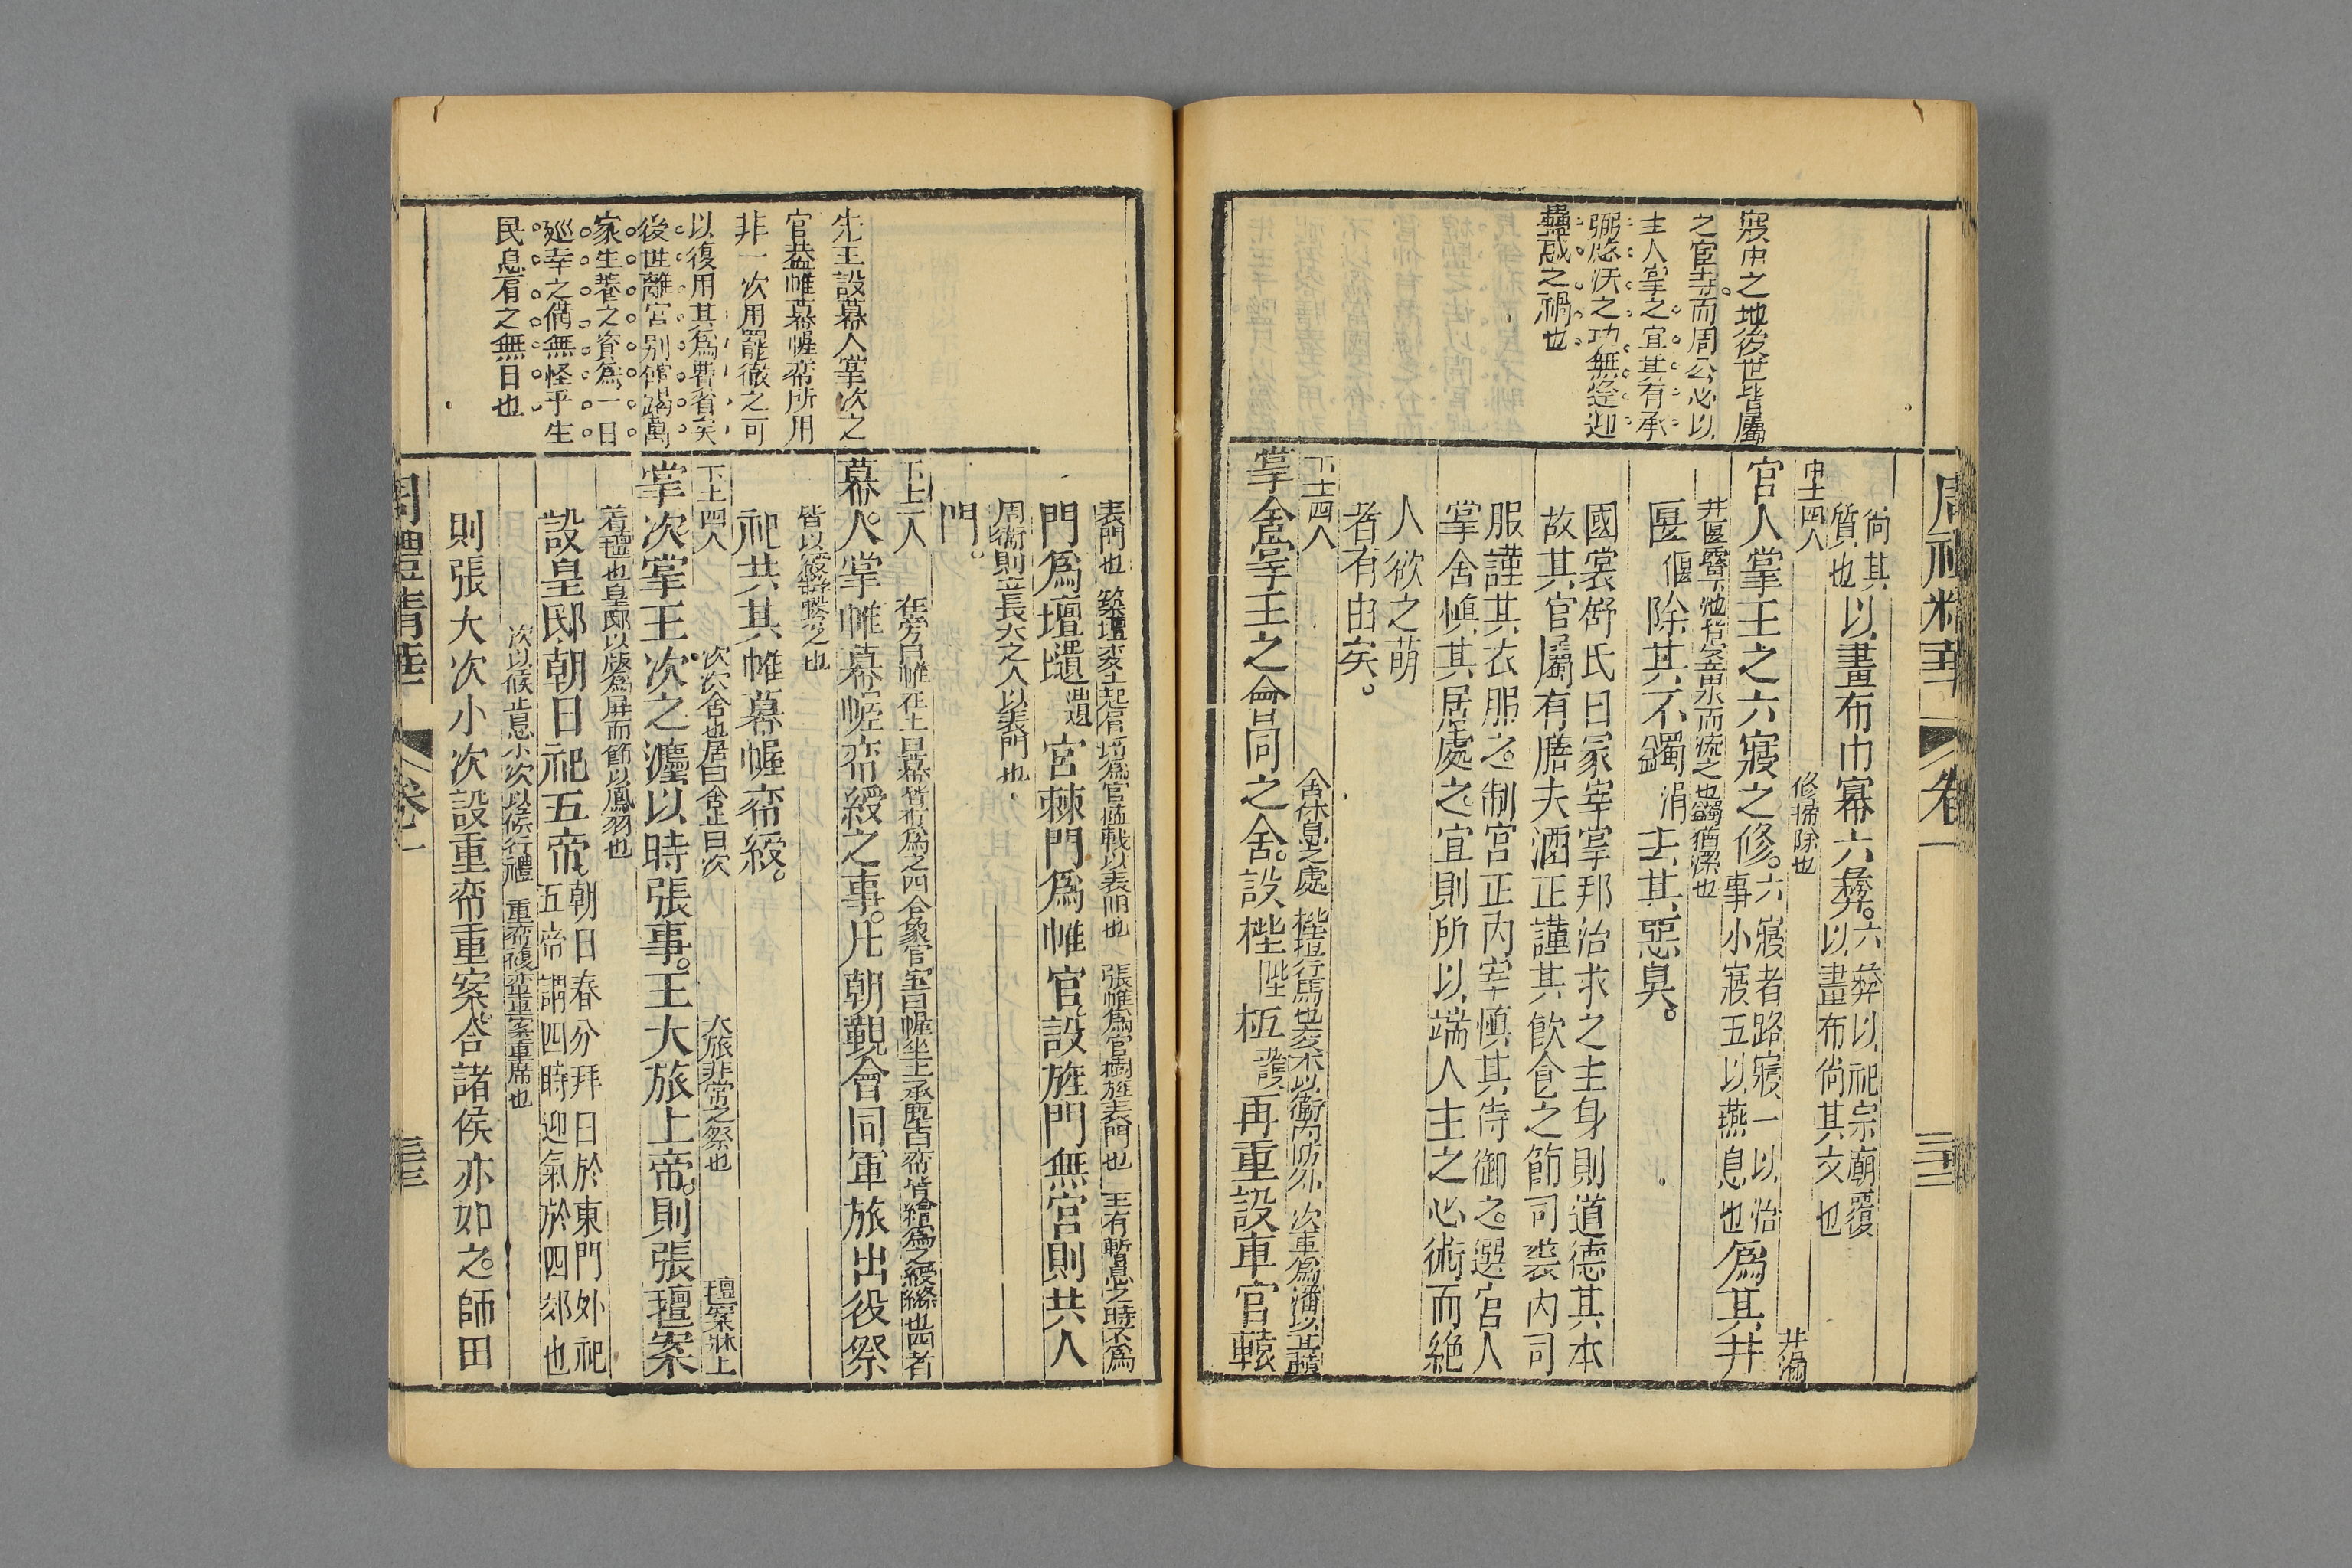 寢中之地後世皆屬
之宦寺而周公必以
主人掌之宜其有承
弼悠沃之功無逢迎
蠱惑之禍也
周禮精華
卷一
尙其
質也
以畫布巾冪六彝
六彝以祀宗廟覆
以畫布尙其文也
中士四人
修掃除也
井漏
宮人掌王之六寢之修
六寢者路寢一以治
事小寢五以燕息也
爲其井
井匽露下地皆受畜水而流之也蠲猶潔也
匽
偃
除其不蠲
涓
去其惡臭
國裳舒氏曰冢宰掌邦治求之主身則道德其本
故其官屬有膳夫酒正謹其飮食之節司裘内司
服謹其衣服之制宮正内宰愼其侍御之選宮人
掌舍愼其居處之宜則所以端人主之心術而絶
人欲之萌
者有由矣
下士四人
舍休息之處
梐拒行馬也交木以衛内防外
次車爲藩以其轅
掌舍掌王之會同之舍設梐
陛
枑
護
再重設車宮轅
先王設幕人掌次之
官葢帷幕幄帟所用
非一次用罷徹之可
以復用其爲費省矣
後世離宮別館竭萬
家生養之資爲一日
廵幸之備無怪乎生
民息肩之無日也
表門也
築壇委土起堳埓爲宮䕫戟以表門也
張帷爲宮樹旌表門也
王有暫息之時不爲
門爲壇壝
遺
宮棘門爲帷宮設旌門無宮則共人
周衛則立長大之人以表門也
門
下士一人
在旁曰帷在上曰幕皆布爲之四合象宮室曰幄坐上承塵曰帟皆繒爲之綬絛也四者
幕人掌帷幕幄帟綬之事凡朝覲會同軍旅出役祭
皆以綬聨繫之也
祀共其帷幕幄帟綬
下士四人
次次舍也居曰舍止曰次
大旅非常之祭也
氊案牀上
掌次掌王次之灋以時張事王大旅上帝則張氊案
着氊也皇邸以版爲屛而飾以鳳羽也
設皇邸朝日祀五帝
朝日春分拜日於東門外祀
五帝謂四時迎氣於四郊也
次以候止息小次以候行禮
重帟複帟重案重席也
則張大次小次設重帟重案合諸侯亦如之師田
周禮精華
卷一